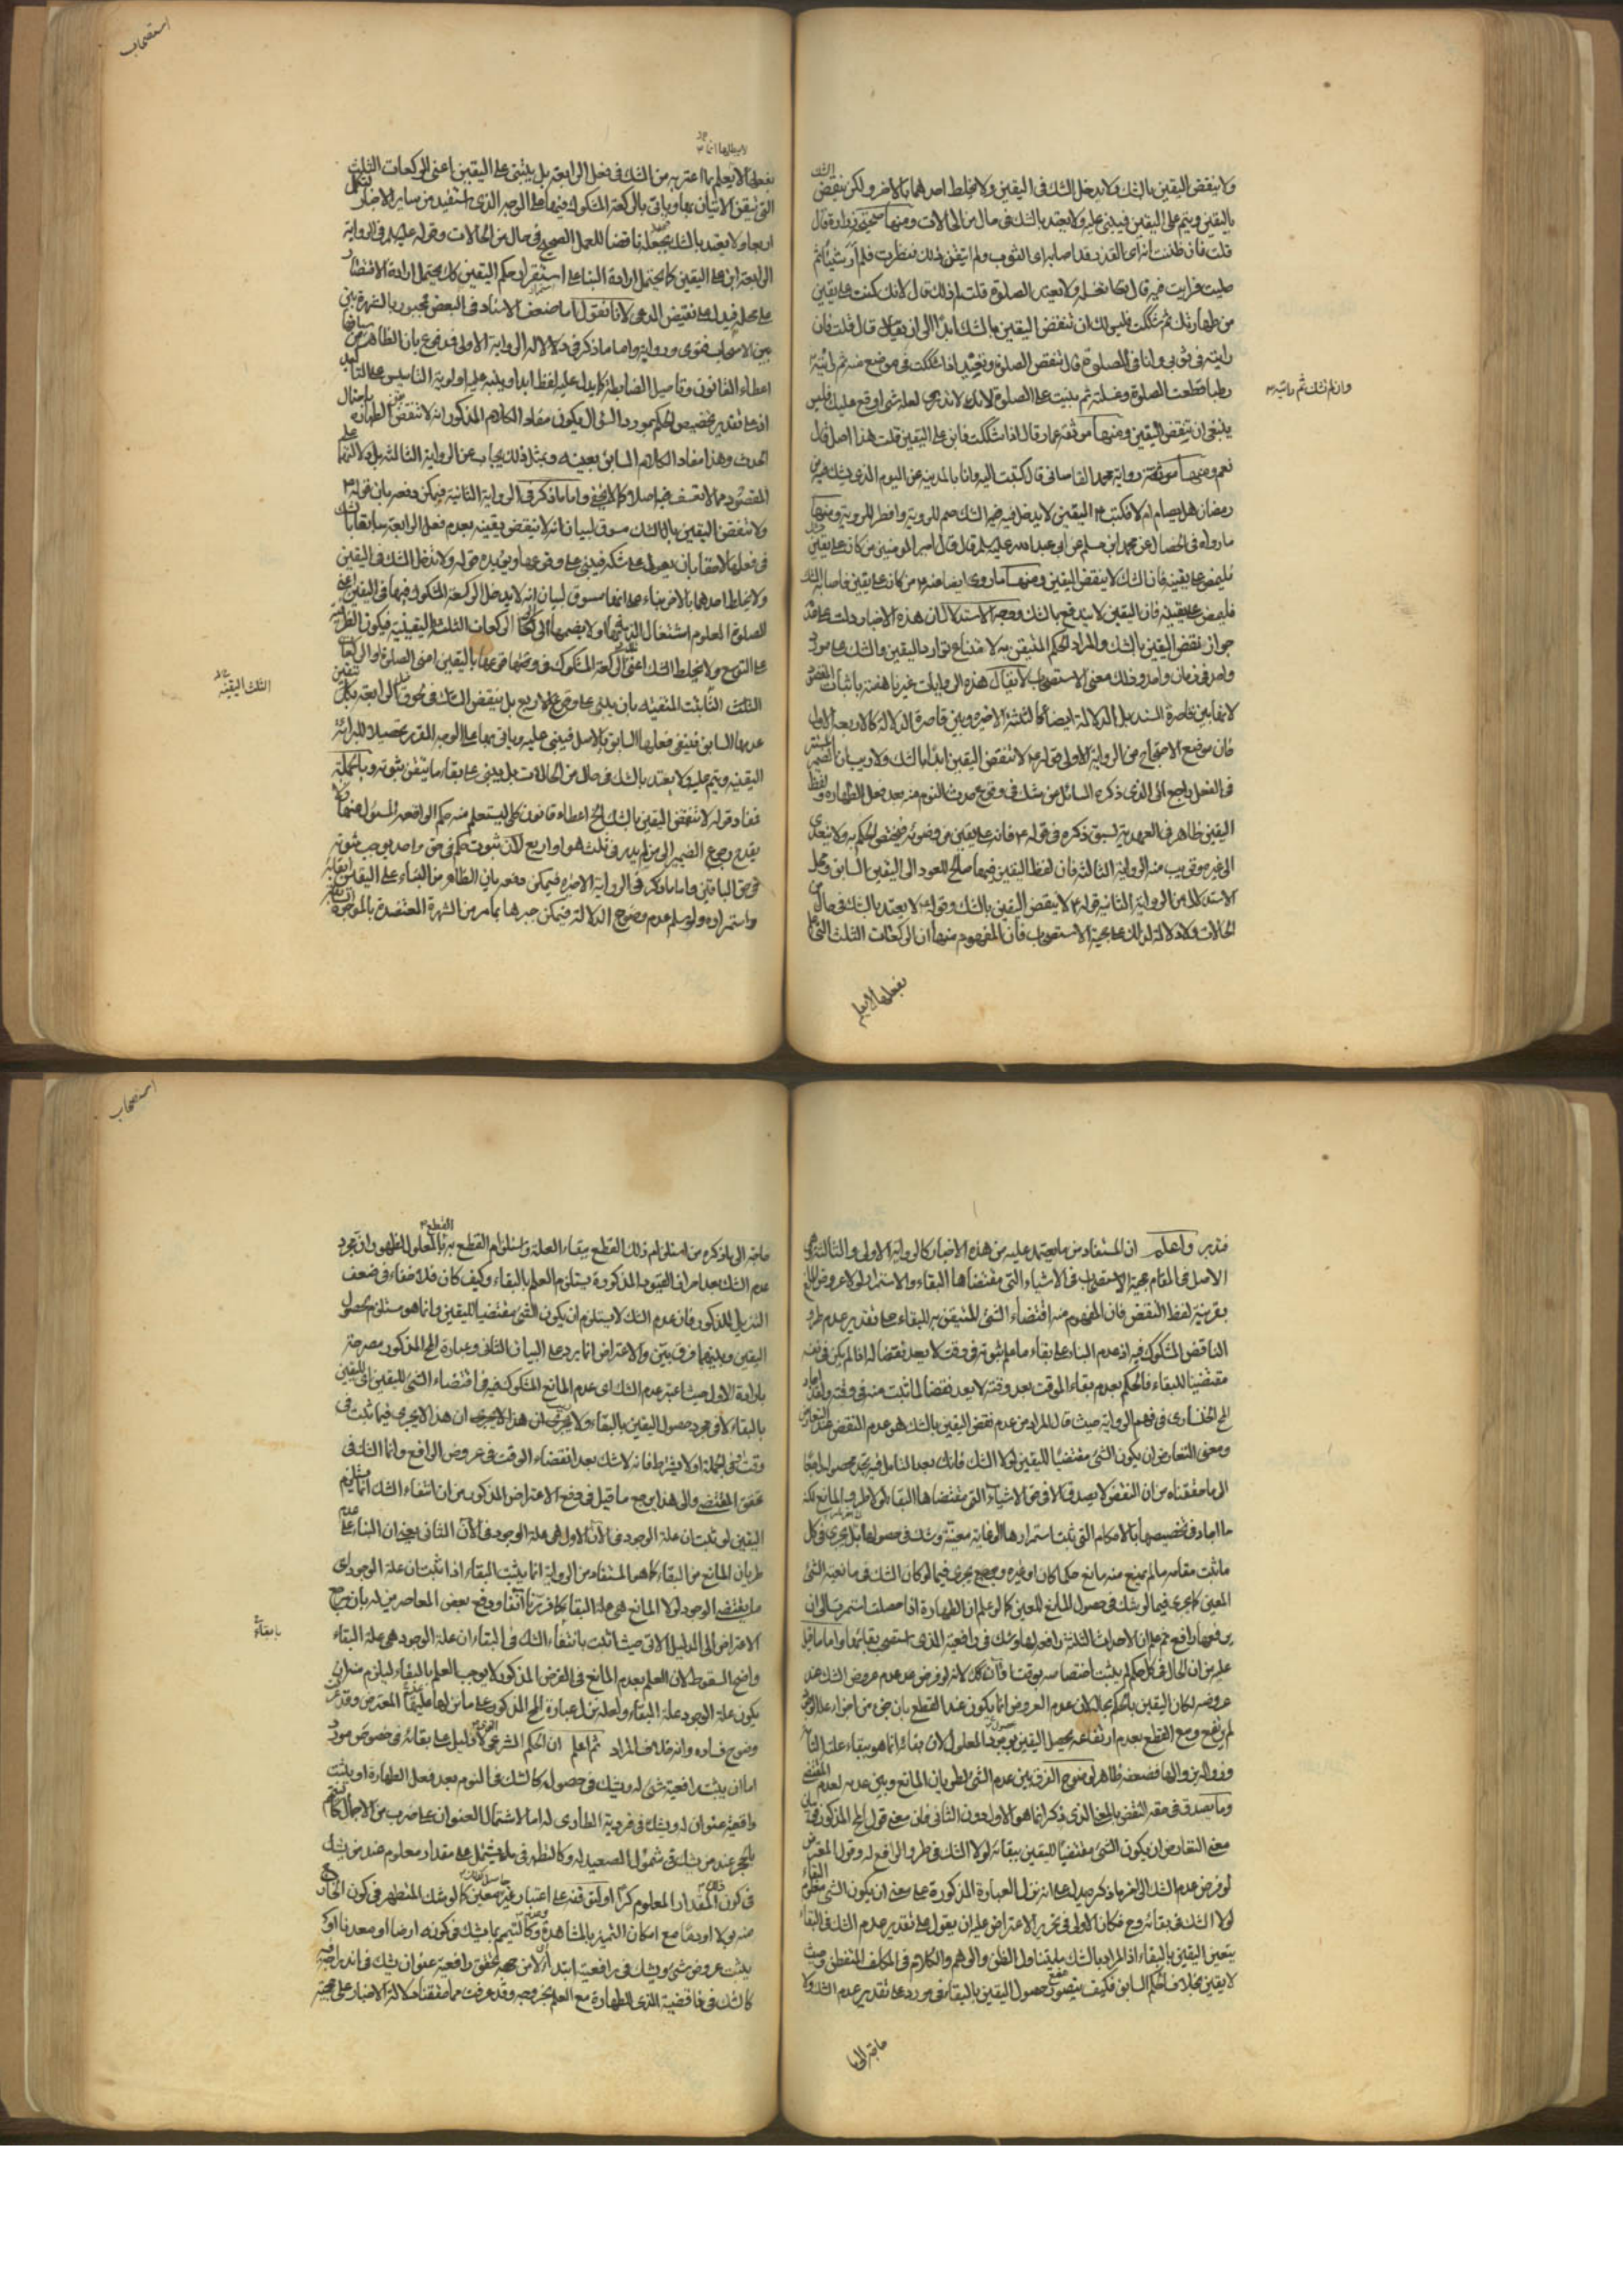 ولا ينقض اليقين بالشك ولا يدخل الشك في اليقين ولا يخلط احدهما بالاخر ولكن ينقض الشك
باليقين ويتم على اليقين فيبنى عليه ولا يعتد بالشك في حال من الحالات ومنها صحيحة زرارة قال
قلت فان ظننت انه اصابه ولم اتيقن ذلك فنظرت فلم ار شيئا ثم
صليت فرايت فيه قال تغسله ولا تعيد الصلوة قلت لم ذلك قال لانك كنت على يقين
من طهارتك ثم شككت فليس لك ان تنقض اليقين بالشك ابدا الى ان قال قلت فان
رايته في ثوبي وانا في الصلوة قال تنقض الصلوة وتعيد اذا شككت في موضع منه ثم رايته
وان لم تشك ثم رايته
رطبا قطعت الصلوة وغسلته ثم بنيت على الصلوة لانك لا تدري لعله شئ اوقع عليك فليس
ينبغي ان تنقض اليقين ومنها موثقة عمار قال اذا شككت فابن على اليقين قلت هذا اصل قال
نعم ومنها رواية محمد القاساني قال كتبت اليه وانا بالمدينة عن اليوم الذي يشك فيه من
رمضان هل يصام ام لا فكتب اليقين لا يدخل فيه الشك صم للروية وافطر للروية ومنها
ما رواه في الخصال عن محمد ابن مسلم عن ابي عبد الله عليه السلم قال قال امير المومنين من كان على يقين فشك
فليمض على يقينه فان الشك لا ينقض اليقين ومنها ما روى ايضا عنه من كان على يقين فاصابه الشك
فليمض على يقينه فان اليقين لا يدفع بالشك ووجه الاستدلال ان هذه الاخبار دلت على عدم
جواز نقض اليقين بالشك والمراد الحكم المتيقن به لامتناع توارد اليقين والشك على مورد
واحد في زمان واحد وذلك معنى الاستصحاب لا يقال هذه الروايات غير ناهضة باثبات المقصود
لانها بين قاصرة السند بل الدلالة ايضا كالثلثة الاخيرة وبين قاصرة الدلالة كالاربعة الاول
فان موضع الاحتجاج من الرواية الاولى قوله لا تنقض اليقين ابدا بالشك ولا ريب ان الضمير
في الفعل راجع الى الذي ذكره السائل من شك في وقوع حدث النوم منه بعد فعل الطهارة ولفظ
اليقين ظاهر في العهدية لسبق ذكره في قوله فانه على يقين من وضوئه فيختص الحكم به ولا يتعدى
الى غيره وقريب منه الرواية الثالثة فان لفظ اليقين فيها صالح للعود الى اليقين السابق ومحل
الاستدلال من الرواية الثانية قوله لا ينقض اليقين بالشك وقوله لا يعتد بالشك في حال من
الحالات ولا دلالة لذلك على حجية الاستصحاب فان المفهوم منها ان الركعات الثلث التي
بفعلها لا يعلم
استصحاب
بفعلها لا يعلم ما اعتريه من الشك في فعل الرابعة بل يبنى على اليقين اعنى الركعات الثلث
التي تيقن الاتيان بها وياتي بالركعة المشكوك فيها على الوجه الذي يستفيد من ساير الاخبار
اربعا ولا يعتد بالشك بجعله ناقضا للعمل الصحيح في حال من الحالات وقوله عليه السلم في الرواية
الرابعة ابن على اليقين كما يحتمل ارادة البناء على استقرار حكم اليقين كك يحتمل ارادة الاقتصار
على نقيض المدعى لانا نقول اما ضعف الاسناد في البعض فمجبور بالشهرة بين
بين الاصحاب فتوى ورواية واما ما ذكر في دلالة الرواية الاولى فمدفوع بان الظاهر من سياقها
اعطاء القانون وتاصيل الضابطة كما يدل عليه لفظ ابدا وينبه عليه اولوية التاسيس على التاكيد
اذ على تقدير تخصيص الحكم بمورد السؤال يكون مفاد الكلام المذكور انه لا تنقض الطهارة باحتمال
الحدث وهذا مفاد الكلام السابق بعينه وبمثل ذلك يجاب عن الرواية الثالثة
المقصود مما لا تعسف فيه اصلا كما لا يخفى واما ما ذكر في الرواية الثانية فيمكن دفعه بان قوله
ولا تنقض اليقين بالشك مسوق لبيان انه لا ينقض يقينه بعدم فعل الرابعة سابقا بالشك
في فعلها لاحقا بان يعول على شكه فيبنى على وقوعها ويؤيده قوله ولا يدخل الشك في اليقين
ولا يخلط احدهما بالاخر بناء على انها مسوق لبيان انه لا يدخل الركعة المشكوك فيها في اليقين اعنى
الصلوة المعلوم اشتغال الذمة بها ولا يضمها الى الركعات الثلث اليقينية فيكون الظرفية
على التوسع ولا يخلط الشك اعنى الركعة المشكوك في وقوعها باليقين اعنى الصلوة او الركعات
الثلث اليقينية
الثلث الثابتة المتيقنة بان يبنى على وقوع الاربع بل ينقض الشك في لحوق الرابعة بيقين
عدمها السابق فينفى فعلها السابق بالاصل فيبنى عليه وياتى بها على الوجه المقرر تحصيلا للبرائة
اليقينية ويتم عليه ولا يعتد بالشك في حال من الحالات بل يبنى على بقاء ما تيقن ثبوته وبالجملة
فمفاد قوله لا تنقض اليقين بالشك الخ اعطاء قانون كلى ليستعلم منه حكم الواقعة المسئول عنها
يقدح رجوع الضمير الى من لم يدر في ثلث هو او اربع لان ثبوت حكم في حق واحد يوجب ثبوته
في حق الباقين واما ما ذكر في الرواية الاخيرة فيمكن دفعه بان الظاهر من البناء على اليقين ابقائه
واستمراره ولو سلم عدم وضوح الدلالة فيمكن جبرها بما مر من الشهرة المعتضدة
فتدبر واعلم ان المستفاد من ما يعتمد عليه من هذه الاخبار كالرواية الاولى والثالثة هي
الاصل في المقام حجية الاستصحاب في الاشياء التي مقتضاها البقاء والاستمرار لولا عروض المانع
بقرينة لفظ النقض فان المفهوم منه اقتضاء الشئ المتيقن به للبقاء على تقدير عدم طرو
الناقض المشكوك فيه اذ عدم البناء على بقاء ما علم ثبوته في وقت لا يعد نقضا له اذا لم يكن في نفسه
مقتضيا للبقاء فالحكم بعدم بقاء الموقت بعد وقته لا يعد نقضا لما ثبت منه في وقته ولقد اجاد
المحقق الخوانساري في فهم الرواية حيث قال المراد من عدم نقض اليقين بالشك هو عدم النقض عند التعارض
ومعنى التعارض ان يكون الشئ مقتضيا لليقين لولا الشك فانك بعد التامل فيه تجد محصله راجعا
الى ما حققناه من ان النقض لا يصدق الا في الاشياء التي مقتضاها البقاء لولا طرو المانع لكنه
ما اجاد في تخصيصها بالاحكام التي ثبت استمرارها الى غاية معينة وشك في حصولها بل يجري في كل
ما ثبت بقائه ما لم يمنع منه مانع حكما كان او غيره ويجري فيما لو كان الشك في مانعية الشئ
المعين كما يجري فيما لو شك في حصول المانع المعين كما لو علم ان الطهارة اذا حصلت استمرت الى ان
يرفعها رافع
عليه من ان الحال في كل حكم لم يثبت اختصاصه بوقت كك لانه لو فرض عدم عروض الشك عند
عروضه لكان اليقين بالحكم بحاله لان عدم العروض انما يكون عند القطع بان جزء من اجزاء علة الوجود
لم يرتفع ومع القطع بعدم ارتفاعه يحصل اليقين بوجود المعلول لان بقائه انما هو ببقاء علته التامة
وزواله بزوالها فضعفه ظاهر لوضوح الفرق بين عدم الشئ لطريان المانع وبين عدمه لعدم المقتضى
وما يصدق في حقه النقض بالمعنى الذي ذكر انما هو الاول دون الثاني فان معنى قول المحقق المذكور في بيان
معنى التعارض ان يكون الشئ مقتضيا لليقين ببقائه لولا الشك في طرو الرافع له وقول المعترض
لو فرض عدم الشك الى اخر ما ذكره يدل على انه نزل العبارة المذكورة على معنى ان يكون الشئ معلوم البقاء
لولا الشك في بقائه وح فكان الاولى في تحرير الاعتراض عليه ان يقول على تقدير عدم الشك في البقاء
يتعين اليقين بالبقاء اذ المراد بالشك ما يتناول الظن والوهم والكلام في المكلف المتفطن وحيث
لا يقين بخلاف الحكم السابق فكيف يتصور حصول اليقين بالبقاء في مورد على تقدير عدم الشك ولا
حاجة الى ما
استصحاب
حاجة الى ما ذكره من استلزام ذلك القطع ببقاء العلة واستلزام القطع به القطع بالمعلول لظهور ان مجرد
عدم الشك بعد امر ان القيود المذكورة يستلزم العلم بالبقاء وكيف كان فلا خفاء في ضعف
التنزيل المذكور فان عدم الشك لا يستلزم ان يكون الشئ مقتضيا لليقين وانما هو مستلزم لحصول
اليقين وبينهما فرق بين والاعتراض انما يرد على البيان الثاني وعبارة المحقق المذكور مصرحة
بارادة الاول حيث اعتبر عدم الشك اى عدم المانع المشكوك فيه في اقتضاء الشئ لليقين
بالبقاء لا في مجرد حصول اليقين بالبقاء ان هذا لا يجري فيما ثبت في
وقت في الجملة او لا بشرط فانه لا شك بعد انقضاء الوقت في عروض الرافع وانما الشك في
تحقق المقتضى والى هذا يرجع ما قيل في دفع الاعتراض المذكور من ان انتفاء الشك انما يستلزم
اليقين لو ثبت ان علة الوجود في الان الاول هي علة الوجود في الان الثاني يعنى ان البناء على عدم
طريان المانع من البقاء كما هو المستفاد من الرواية انما يثبت البقاء اذا ثبت ان علة الوجود اى
ما يقتضى الوجود لولا المانع هي علة البقاء كما قررنا انفا ودفع بعض المعاصرين له بان مرجع
الاعتراض الى الدليل الاتى حيث اثبت بانتفاء الشك في البقاء ان علة الوجود هي علة البقاء
واضح السقوط لان العلم بعدم المانع في الفرض المذكور لا يوجب العلم بالبقاء ليلزم منه ان
يكون علة الوجود علة البقاء ولعله نزل عبارة المحقق المذكور على ما نزلها عليه المعترض وقد عرفت
وضوح فساده وانه خلاف المراد ثم اعلم ان الحكم الشرعي الذي لا دليل على بقائه في خصوص مورد
اما ان يثبت رافعية شئ له ويشك في حصوله كالشك في النوم بعد فعل الطهارة او يثبت
رافعية عنوان له ويشك في فردية الطارى له اما لاشتمال العنوان على ضرب من الاجمال كالتيمم
بالحجر عند من يشك في شمول الصعيد له وكالتطهر في ماء يشتمل على مقدار معلوم عند من يشك
في كون ذلك المقدار المعلوم كرا او لتوقفه على اعتبار غير معين كما لو شك المتطهر في كون الخارج
منه بولا او وديا مع امكان التميز بالمشاهدة وكالتيمم بما يشك في كونه ارضا او معدنا او
يثبت عروض شئ ويشك في رافعيته ابتداء لا من جهة تحقق رافعية عنوان يشك في اندراجه فيه
كالشك في ناقضية المذى للطهارة مع العلم بخروجه وقد عرفت مما حققنا دلالة الاخبار على حجية